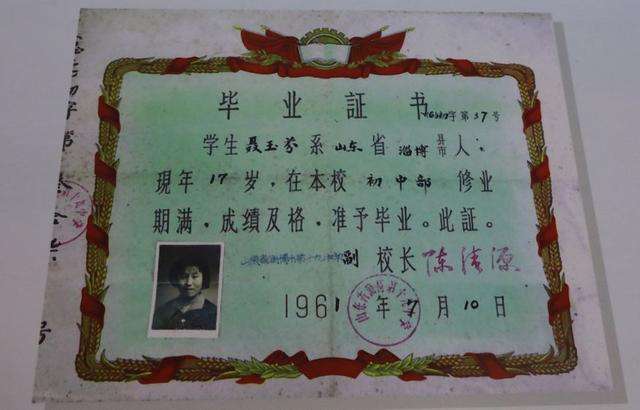 毕业証书
初字第37号
学生聂玉芬系山东省淄博县市人,
現年17岁,在本校初中部修业
期满,成績及格,准予毕业。此証。
副校长陈清源
1961年7月10日
号